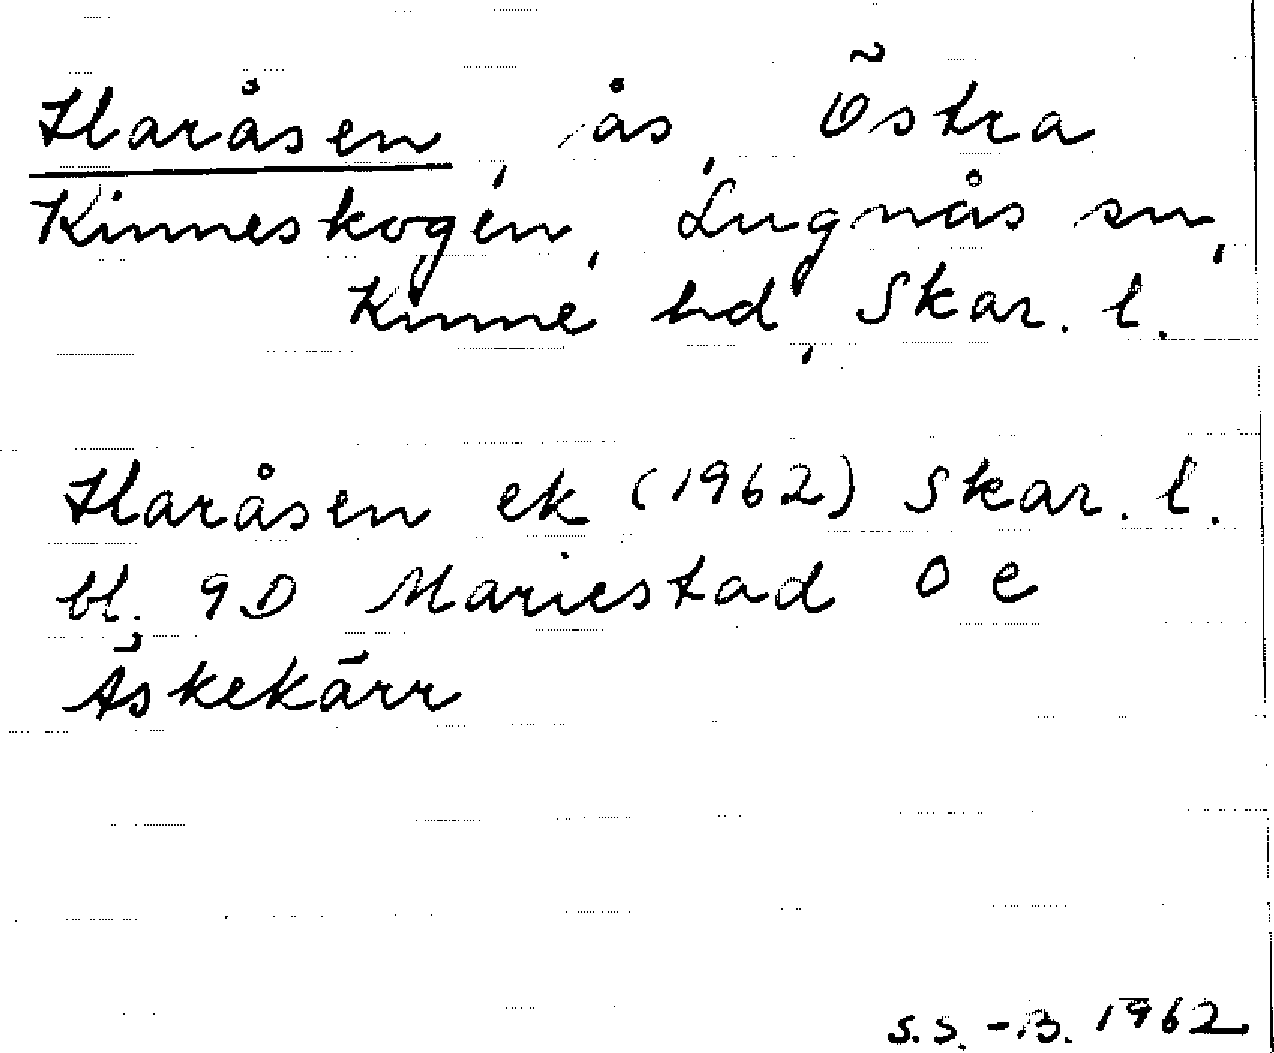 Haråsen, ås, Östra
Kinneskogen, Lugnås sn,
Kinne hd, Skar. l.
Haråsen ek (1962) Skar. l.
bl. 9D Mariestad 0 e
Äskekärr
S.S.-B. 1962